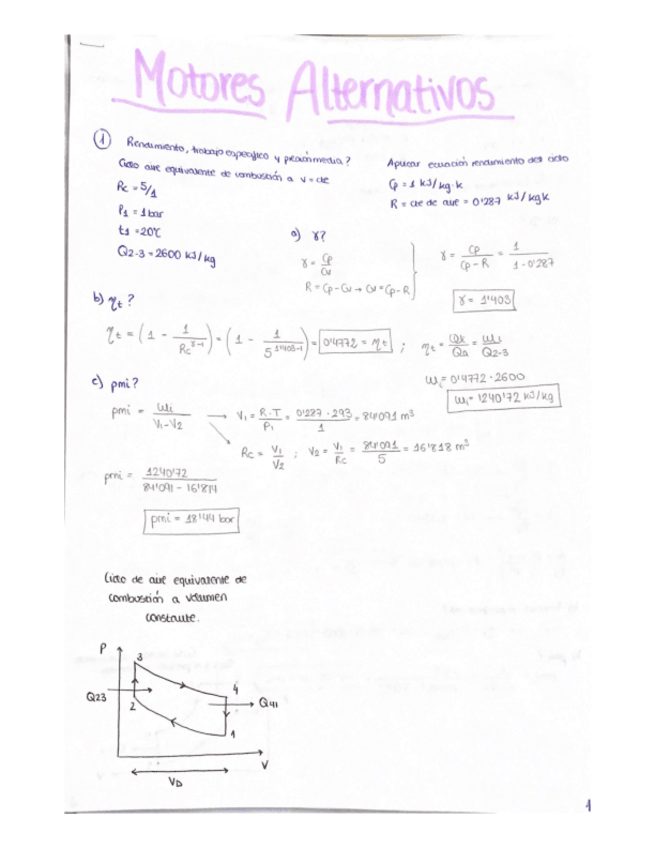 Motores Alternativos
① Rendimiento, trabajo específico y presión media?
Ciclo aire equivalente de combustión a V = cte
Rc = 5/1
P1 = 1 bar
t1 = 20ºC
Q2-3 = 2600 kJ/kg
Aplicar ecuación rendimiento del ciclo
Cp = 1 kJ/kg·k
R = cte de aire = 0'287 kJ/kgk
a) γ?
γ = Cp/Cv
R = Cp - Cv → Cv = Cp - R
γ = Cp/(Cp - R) = 1/(1 - 0'287)
γ = 1'403
b) ηt?
ηt = (1 - 1/Rc^γ-1) = (1 - 1/5^1'403-1) = 0'4772 = ηt ; ηt = Qx/Qa = Wi/Q2-3
Wi = 0'4772 · 2600
Wi = 1240'72 kJ/kg
c) pmi?
pmi = Wi/(V1 - V2) → V1 = R·T/P1 = 0'287 · 293/1 = 84'091 m³
Rc = V1/V2 ; V2 = V1/Rc = 84'091/5 = 16'818 m³
pmi = 1240'72/(84'091 - 16'814)
pmi = 18'44 bar
Ciclo de aire equivalente de
combustión a volumen
constante.
P
3
Q23
2
4
Q41
1
V
VD
1